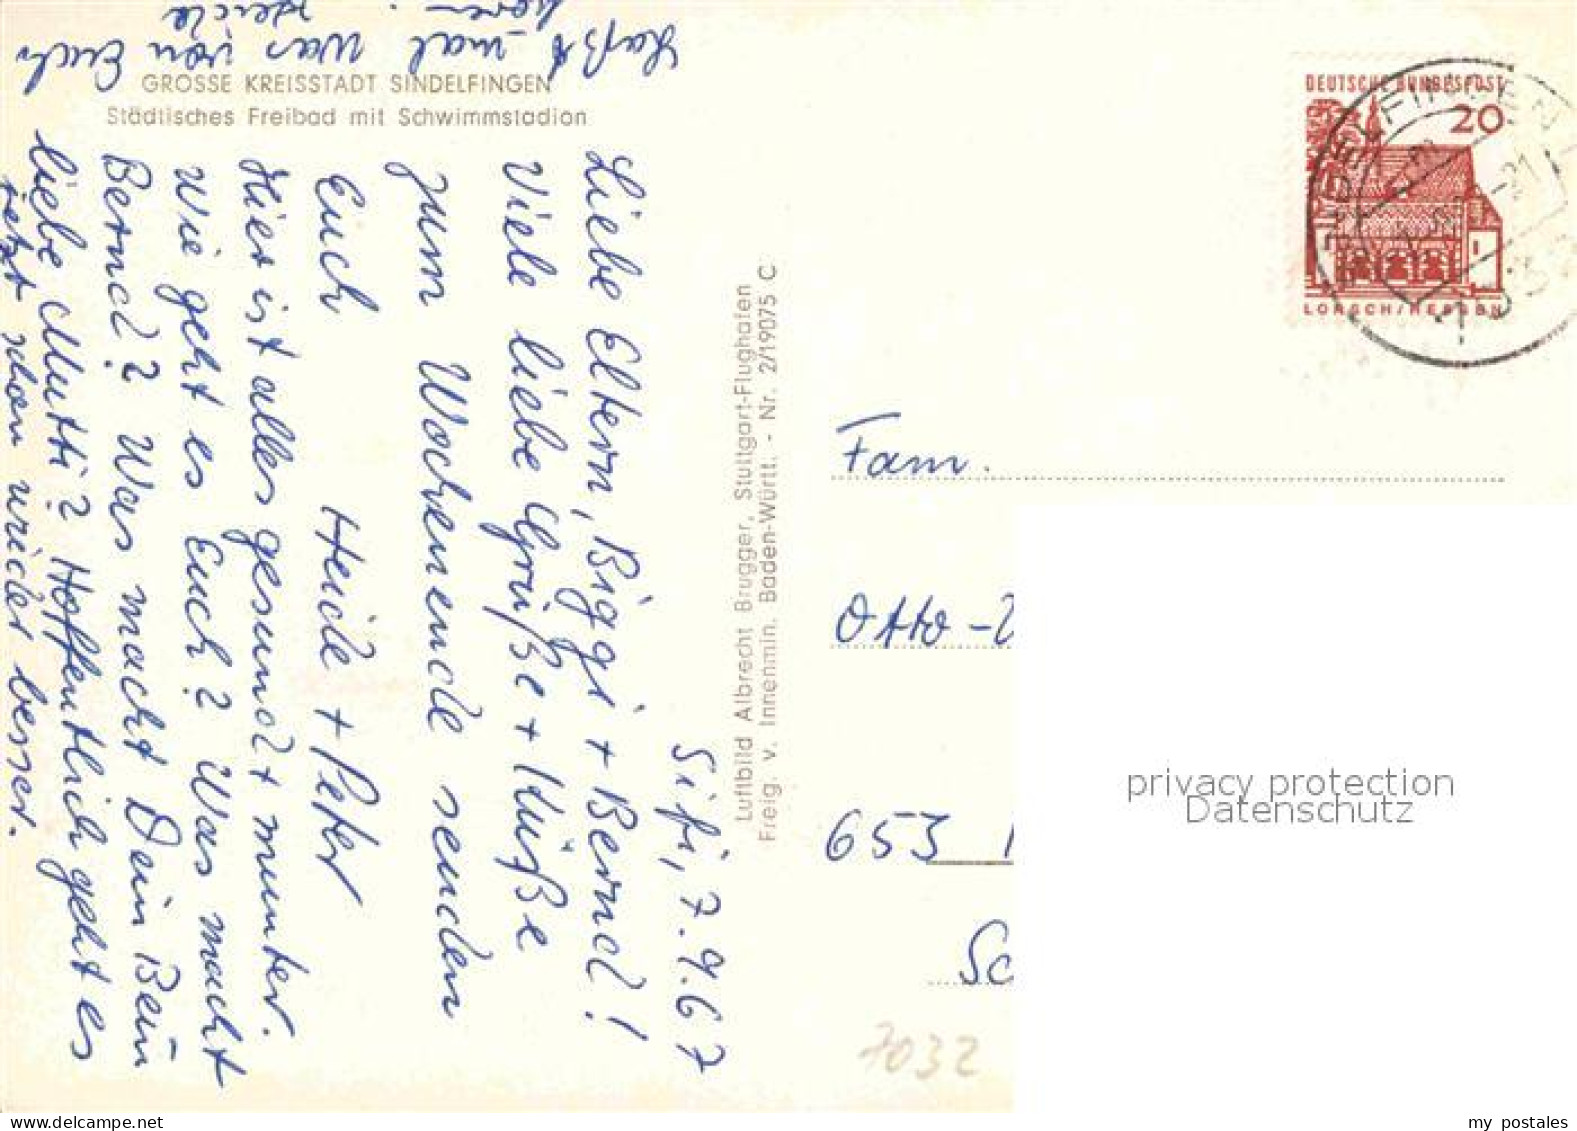 GROSSE KREISSTADT SINDELFINGEN
Städtisches Freibad mit Schwimmstadion
Sifi, 7.9.67
Liebe Eltern, Biggi + Bernd!
Viele liebe Grüße + Küße
zum Wochenende senden
Euch Heide + Peter
Hier ist alles gesund + munter.
Wie geht es Euch? Was macht
Bernd? Was macht Dein Bein
liebe Mutti? Hoffentlich geht es
jetzt schon wieder besser.
Laßt mal was von Euch
hören.
Heide
Luftbild Albrecht Brugger, Stuttgart-Flughafen
Freig. v. Innenmin. Baden-Württ. - Nr. 2/19075 C
DEUTSCHE BUNDESPOST
20
LORSCH/HESSEN
SINDELFINGEN
7032
Fam.
Otto-
653
Sc
7032
privacy protection
Datenschutz
my postales